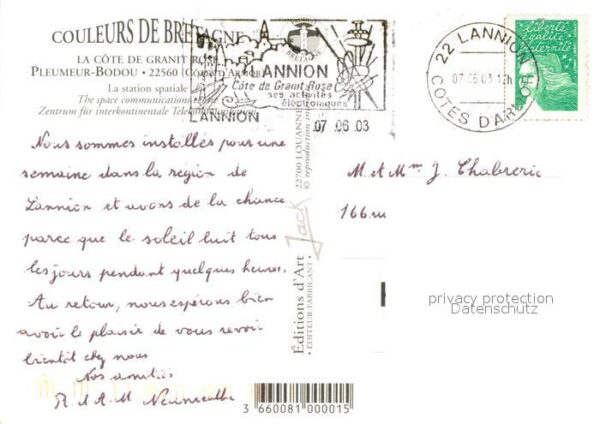 COULEURS DE BRETAGNE
LA CÔTE DE GRANIT ROSE
PLEUMEUR-BODOU • 22560 (CÔTES D'ARMOR)
La station spatiale
The space communications
Zentrum für interkontinentale
BRETAGNE
LANNION
Côte de Granit Rose
ses activités
électroniques
LANNION 07.06.03
22 LANNION
07.06.03 12h
COTES D'ARMOR
liberté
égalité
fraternité
Nous sommes installés pour une
semaine dans la région de
Lannion et avons de la chance
parce que le soleil luit tous
les jours pendant quelques heures.
Au retour, nous espérons bien
avoir le plaisir de vous revoir
bientôt chez nous
Nos amitiés
R et A.M
M et Mme J. Chabrerie
166 ru
Editions d'Art Jack
• ÉDITEUR-FABRICANT •
22700 LOUANNEC
© reproduction
privacy protection
Datenschutz
3 660081 000015